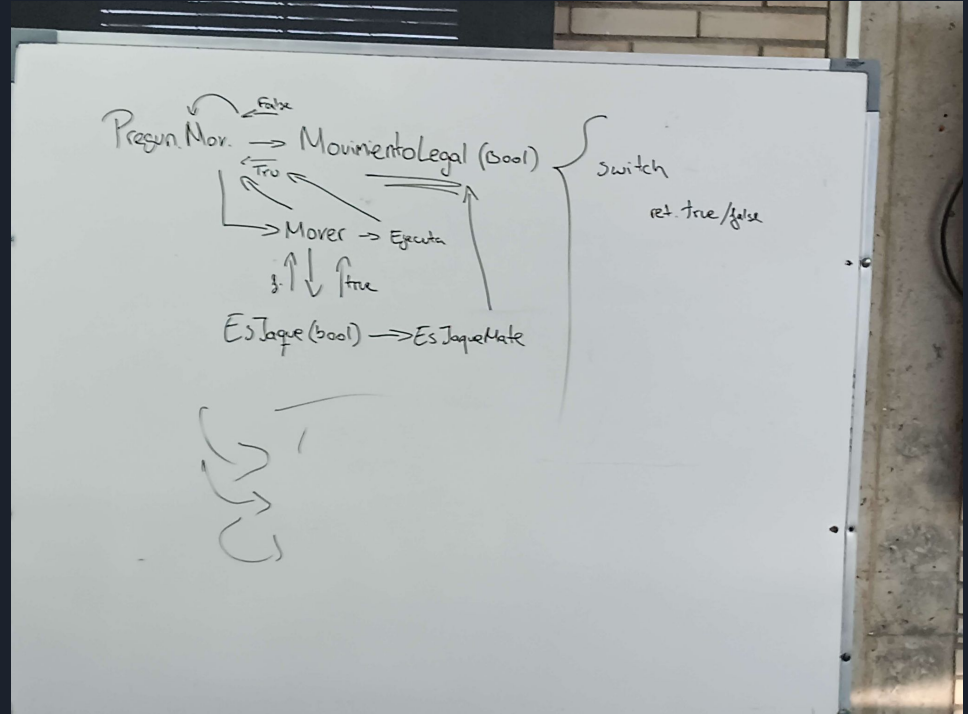 False
Pregun. Mov. → MovimientoLegal (Bool)
switch
Tru
ret. true/false
Mover → Ejecuta
f. true
EsJaque (bool) → EsJaqueMate